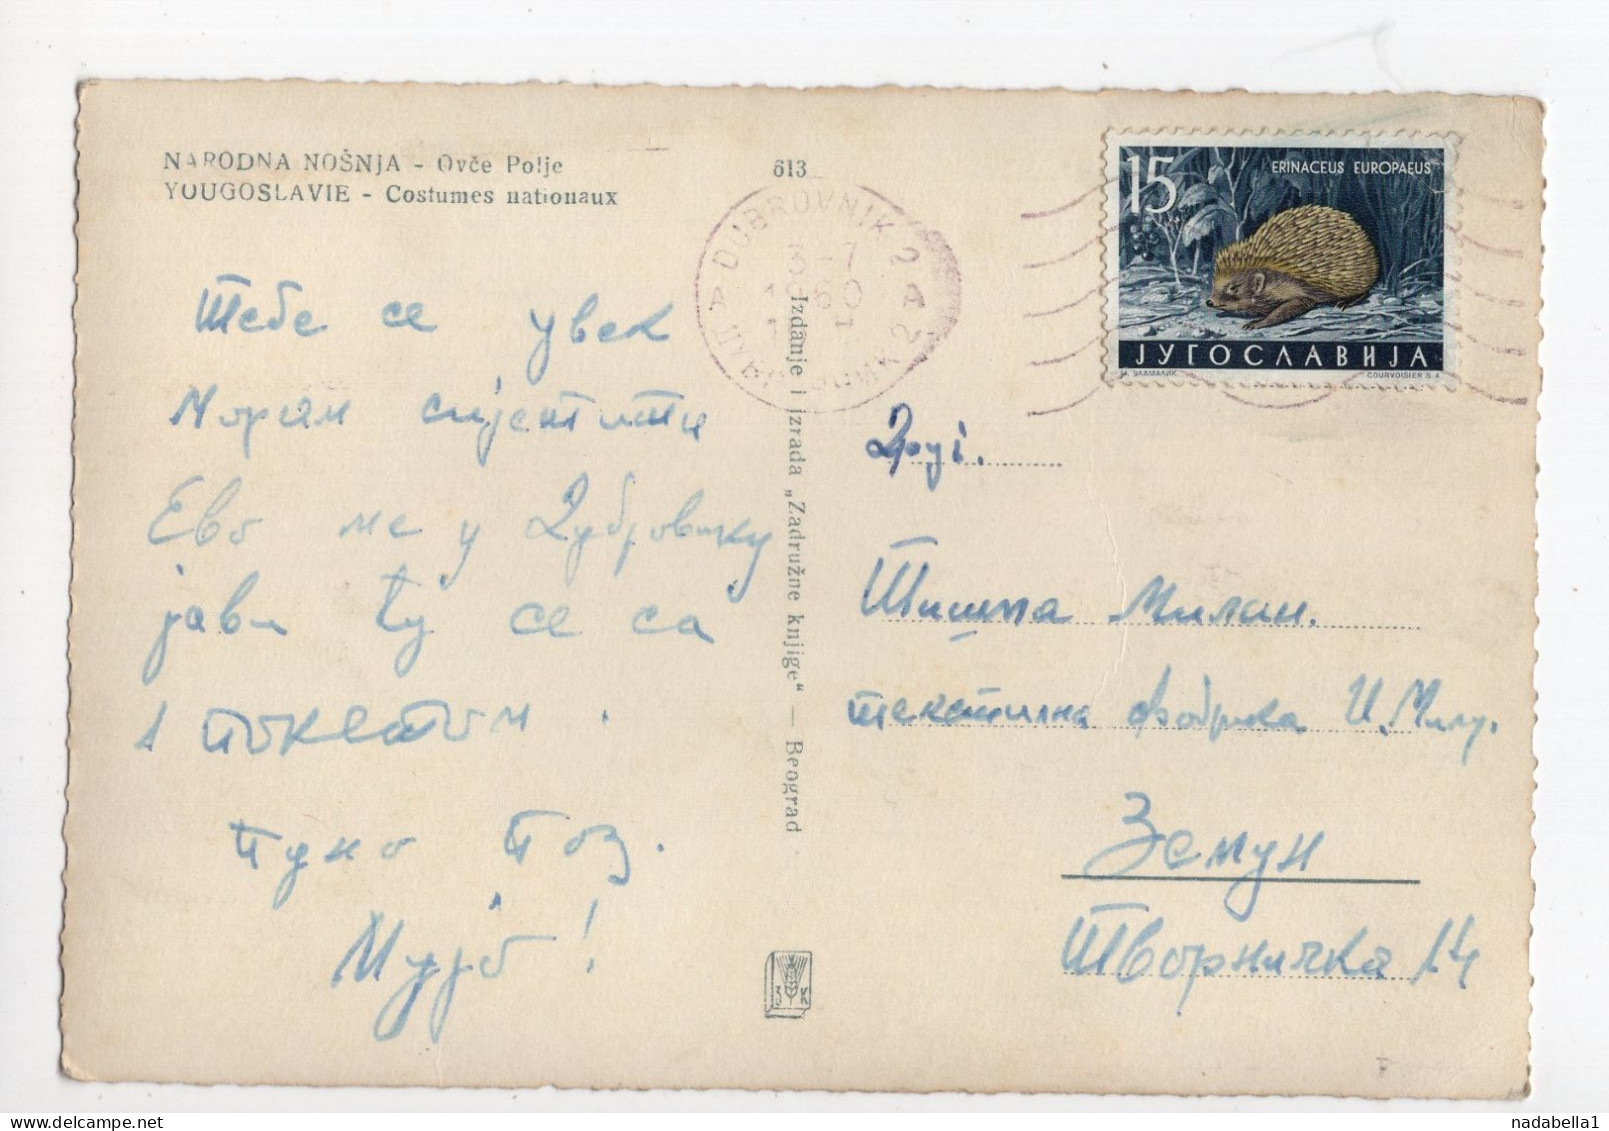 NARODNA NOŠNJA - Ovče Polje
YOUGOSLAVIE - Costumes nationaux
613
DUBROVNIK 2
60
A
A
ДУБРОВНИК 2
15
ERINACEUS EUROPAEUS
ЈУГОСЛАВИЈА
COURVOISIER S.A.
Тебе се увек
Морам сијетити
Ево ме у Дубровнику
јави ћу се са
Пуно Поз.
Мујо!
Izdanje i izrada „Zadružne knjige“ — Beograd
Друг.
Тишма Милан.
текстилна фабрика И. Милу.
Земун
Творничка 14
nadabella1